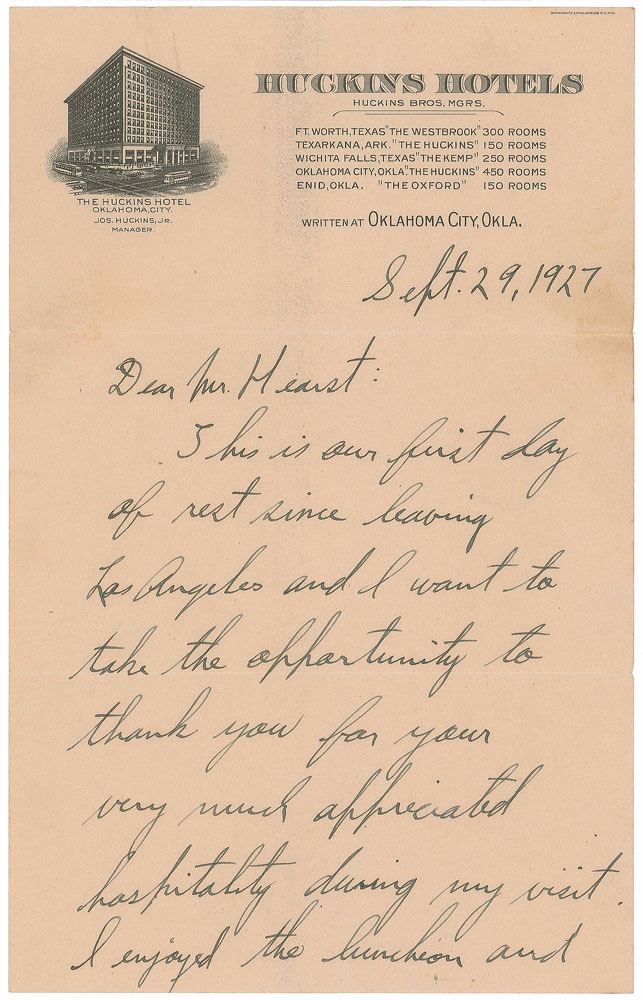 HUCKINS HOTELS
HUCKINS BROS. MGRS.
FT. WORTH, TEXAS "THE WESTBROOK" 300 ROOMS
TEXARKANA, ARK. "THE HUCKINS" 150 ROOMS
WICHITA FALLS, TEXAS "THE KEMP" 250 ROOMS
OKLAHOMA CITY, OKLA "THE HUCKINS" 450 ROOMS
ENID, OKLA. "THE OXFORD" 150 ROOMS
THE HUCKINS HOTEL
OKLAHOMA, CITY.
JOS. HUCKINS, JR.
MANAGER.
WRITTEN AT OKLAHOMA CITY, OKLA.
Sept. 29, 1927
Dear Mr. Hearst:
This is our first day
of rest since leaving
Los Angeles and I want to
take the opportunity to
thank you for your
very much appreciated
hospitality during my visit.
I enjoyed the luncheon and